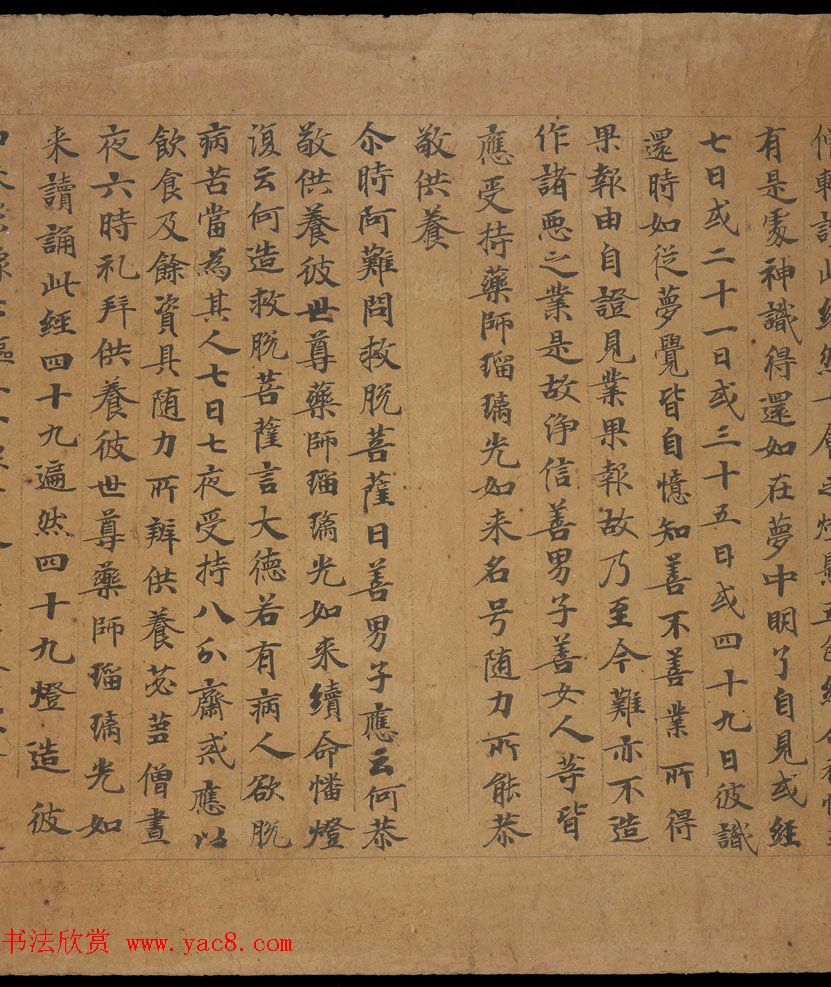 轉讀此經然七層之燈懸五色續命神
有是處神識得還如在夢中明了自見或經
七日或二十一日或三十五日或四十九日彼識
還時如從夢覺皆自憶知善不善業所得
果報由自證見業果報故乃至命難亦不造
作諸惡之業是故淨信善男子善女人等皆
應受持藥師瑠璃光如来名号随力所能恭
敬供養
尒時阿難問救脫菩薩曰善男子應云何恭
敬供養彼世尊藥師瑠璃光如来續命幡燈
復云何造救脫菩薩言大德若有病人欲脫
病苦當為其人七日七夜受持八分齋戒應以
飲食及餘資具随力所辦供養苾蒭僧晝
夜六時礼拜供養彼世尊藥師瑠璃光如
来讀誦此經四十九遍然四十九燈造彼
书法欣赏 www.yac8.com